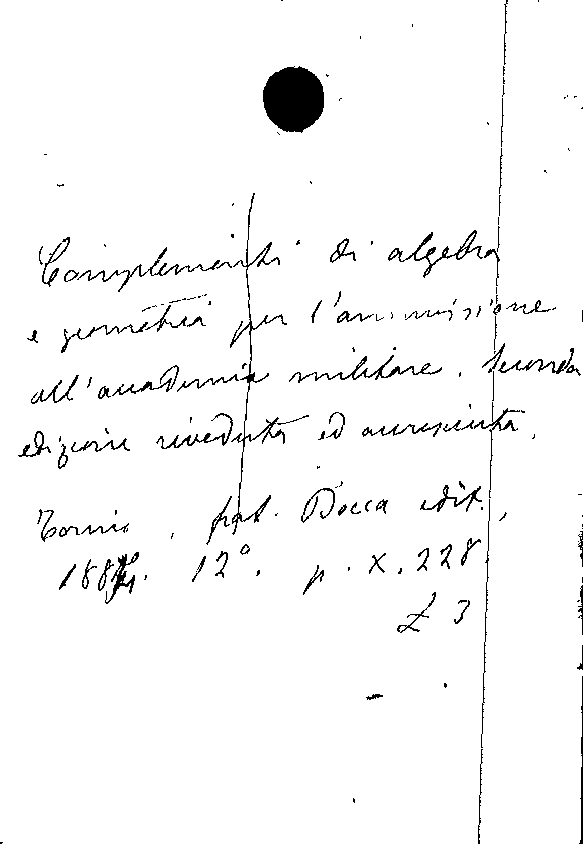 Complementi di algebra
e geometria per l'ammissione
all'accademia militare. Seconda
edizione riveduta ed accresciuta.
Torino, frat. Bocca edit.,
188 . 12°. p. X. 228
£ 3